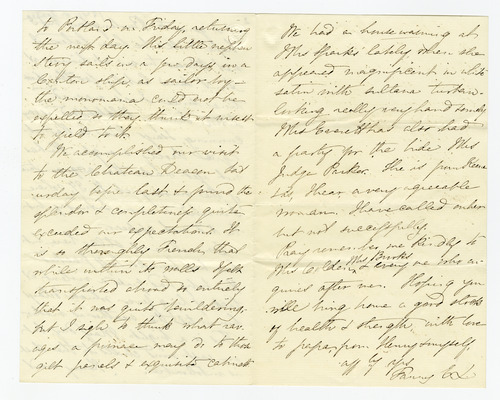 to Portland on Friday, returning
the next day. His little nephew
Harry sails in a few days in a
Canton ship, as sailor boy –
the monomania could not be
repelled, so they think it wisest
to yield to it.
We accomplished our visit
to the Chateau Deacon Sat
urday before last & found the
splendor & completeness quite
exceeded our expectations. It
is so thoroughly French, that
while within its walls I felt
transported abroad so entirely
that it was quite bewildering,
but I sigh to think what rav
ages a furnace may do to those
gilt panels & exquisite cabinets
We had a housewarming at
Mrs Sparks' lately when she
appeared magnificent in white
satin with sultana turban –
looking really very handsome.
Mrs Everett has also had
a party for the bride Mrs
Judge Parker. She is from Keene
&, I hear a very agreeable
woman. I have called on her
but not successfully.
Pray remember me kindly to
Mrs Brooks
& every one who in
quires after me. Hoping you
will bring home a good stock
of health & strength, with love
to papa, from Henry & myself,
aff ly yrs
Fanny E L